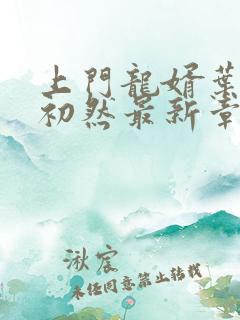 上門龍婿葉
初然最新章
湫宸
未经同意禁止转载